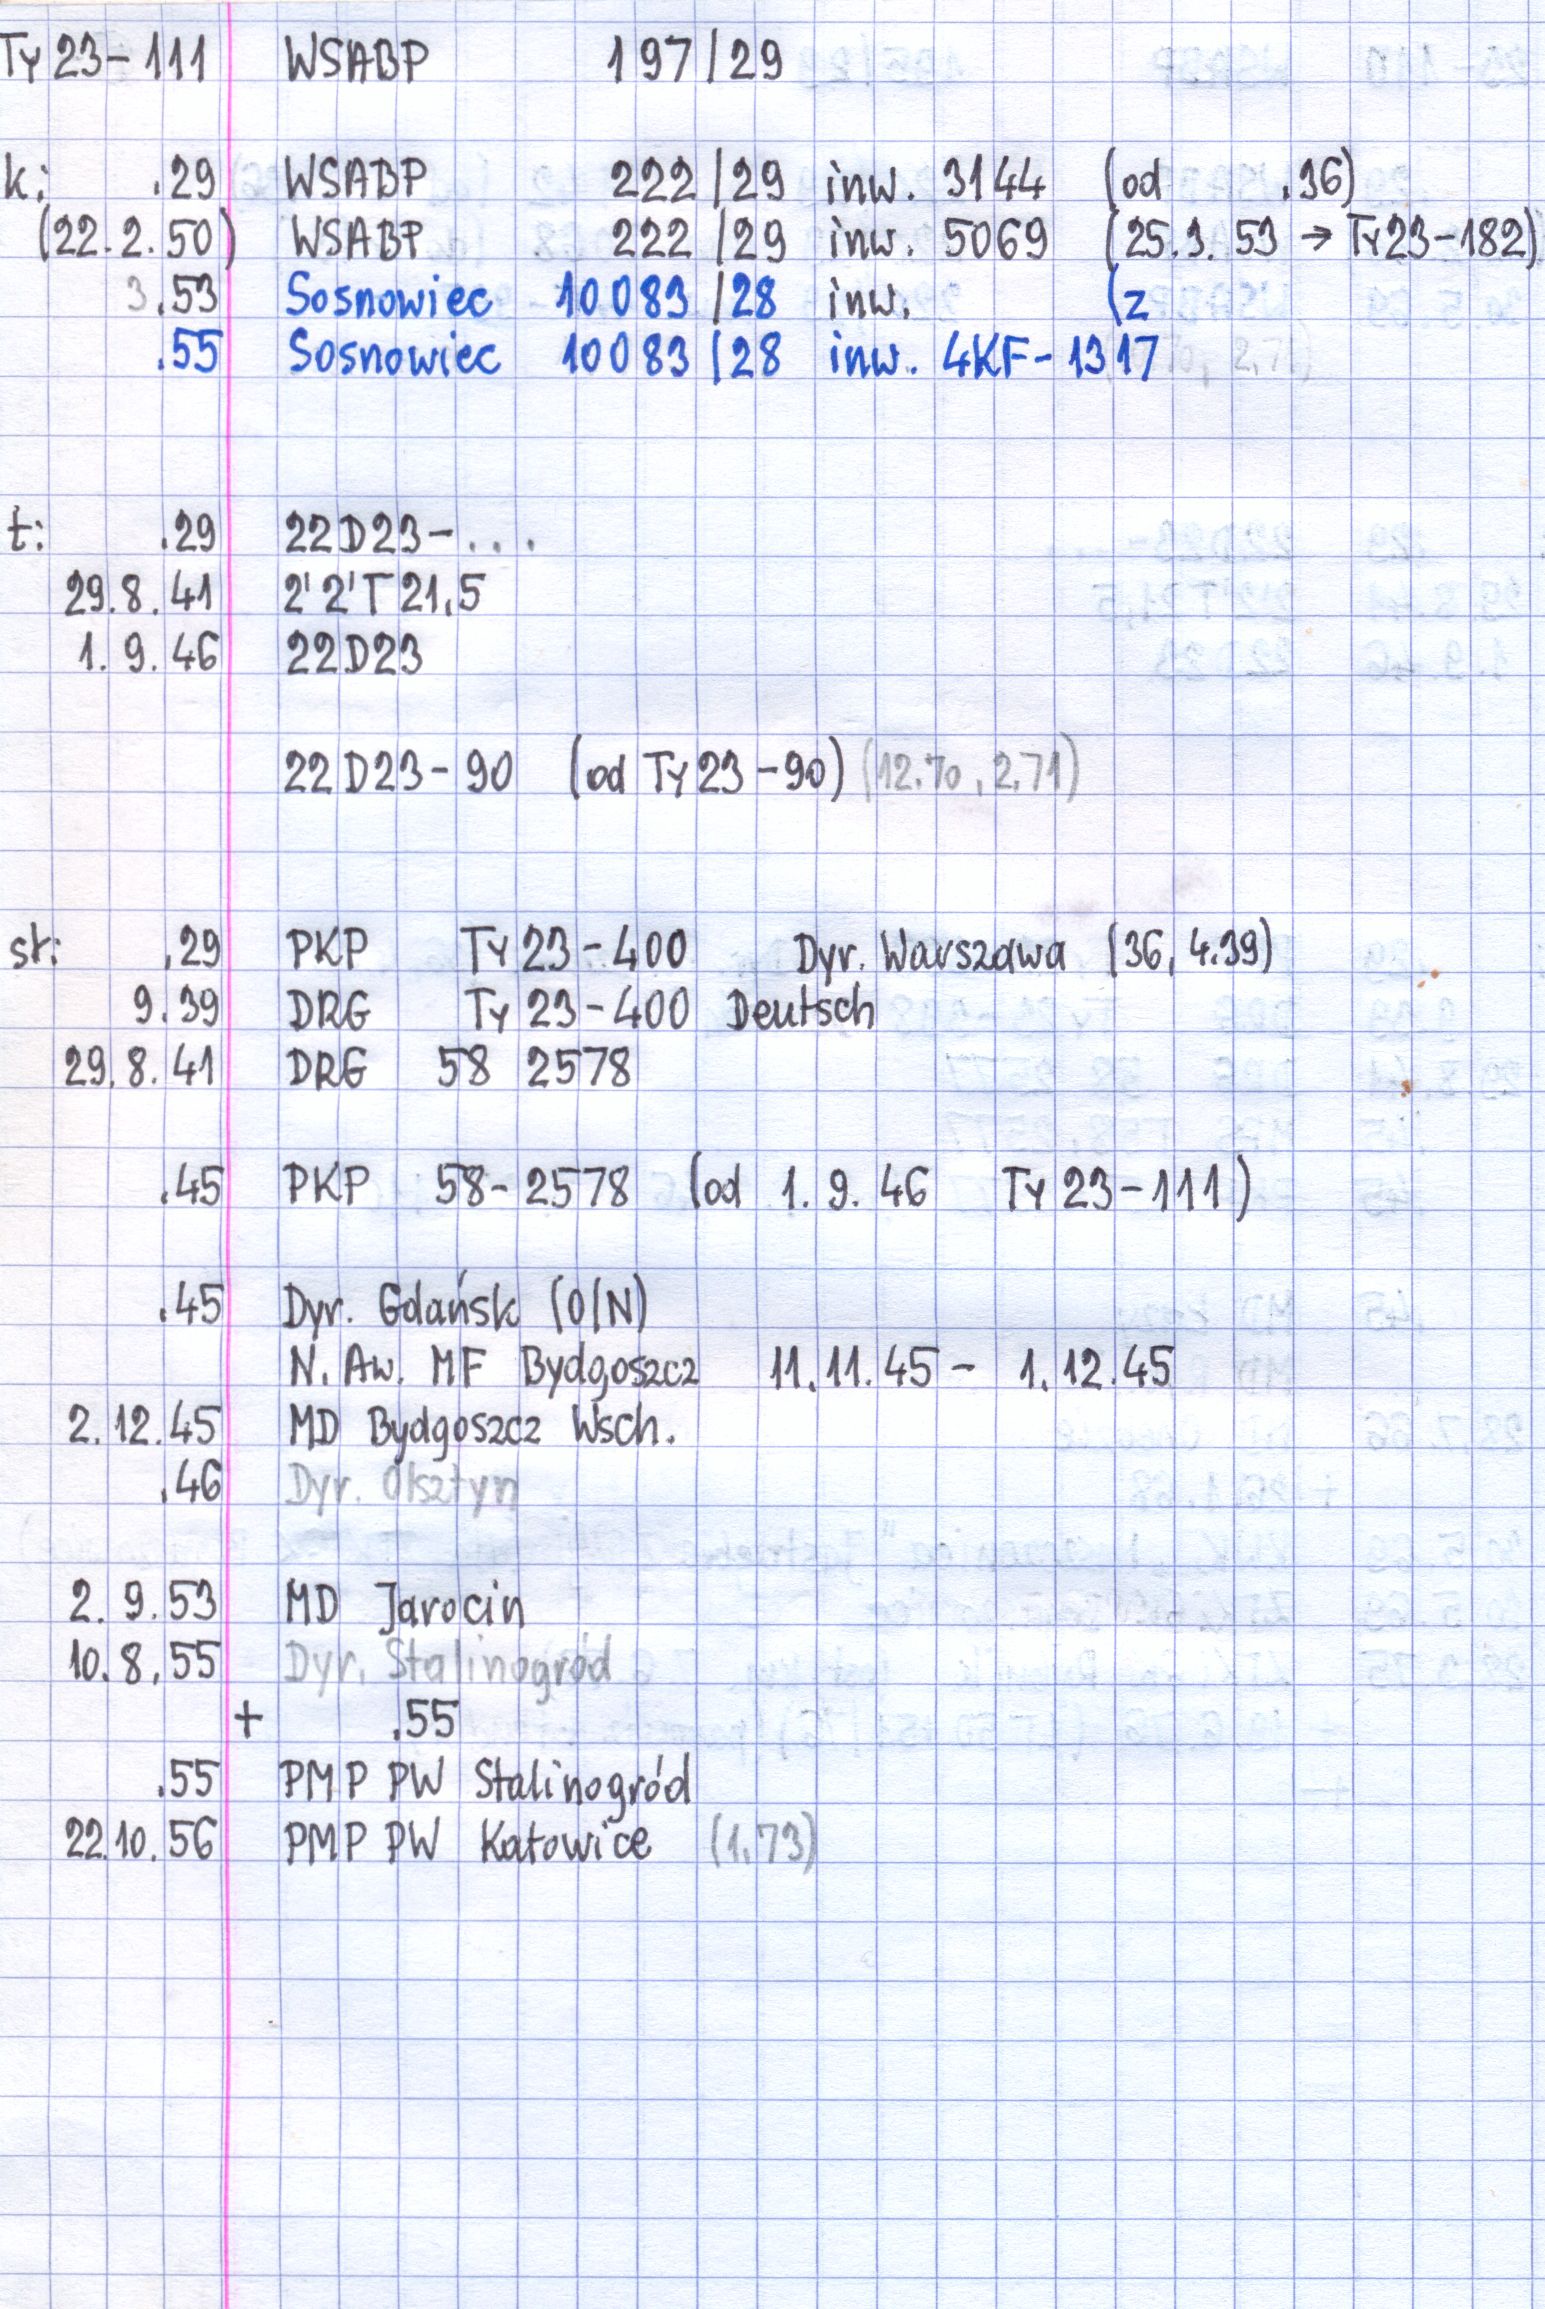 Ty 23-111 WSABP 197/29
k: .29 WSABP 222/29 inw. 3144 (od .36)
(22.2.50) WSABP 222/29 inw. 5069 (25.3.53 → Ty23-182)
3.53 Sosnowiec 10083/28 inw. (z
.55 Sosnowiec 10083/28 inw. 4KF-1317
t: .29 22D23-...
29.8.41 2'2'T21,5
1.9.46 22D23
22D23-90 (od Ty23-90) (12.70, 2.71)
st: .29 PKP Ty23-400 Dyr. Warszawa (36, 4.39)
9.39 DRG Ty23-400 Deutsch
29.8.41 DRG 58 2578
.45 PKP 58-2578 (od 1.9.46 Ty23-111)
.45 Dyr. Gdańsk (O/N)
N. Aw. MF Bydgoszcz 11.11.45 - 1.12.45
2.12.45 MD Bydgoszcz Wsch.
.46 Dyr. Olsztyn
2.9.53 MD Jarocin
10.8.55 Dyr. Stalinogród
+ .55
.55 PMP PW Stalinogród
22.10.56 PMP PW Katowice (1.73)